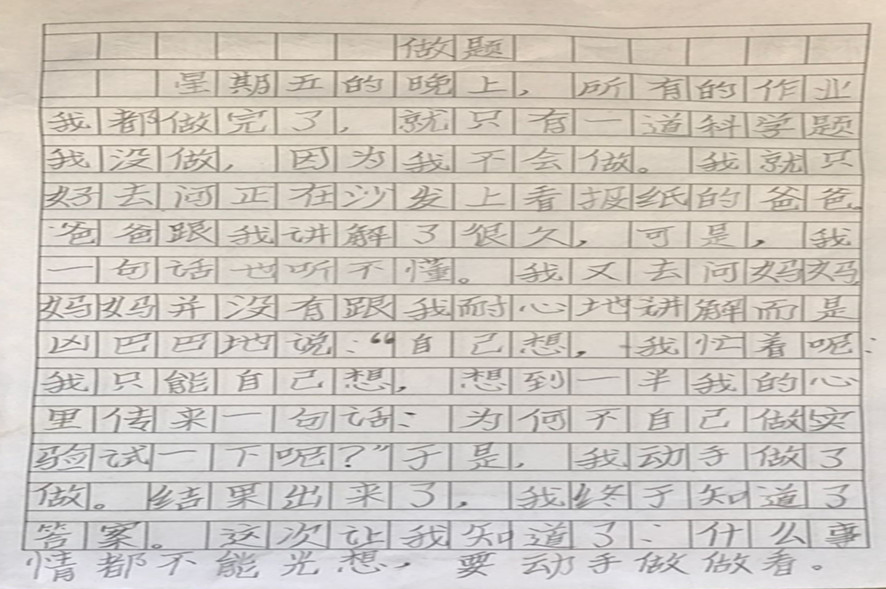 做题
星期五的晚上，所有的作业
我都做完了，就只有一道科学题
我没做，因为我不会做。我就只
好去问正在沙发上看报纸的爸爸。
爸爸跟我讲解了很久，可是，我
一句话也听不懂。我又去问妈妈，
妈妈并没有跟我耐心地讲解而是
凶巴巴地说：“自己想，我忙着呢：
我只能自己想，想到一半我的心
里传来一句话：为何不自己做实
验试一下呢？”于是，我动手做了
做。结果出来了，我终于知道了
答案。这次让我知道了：什么事
情都不能光想，要动手做做看。